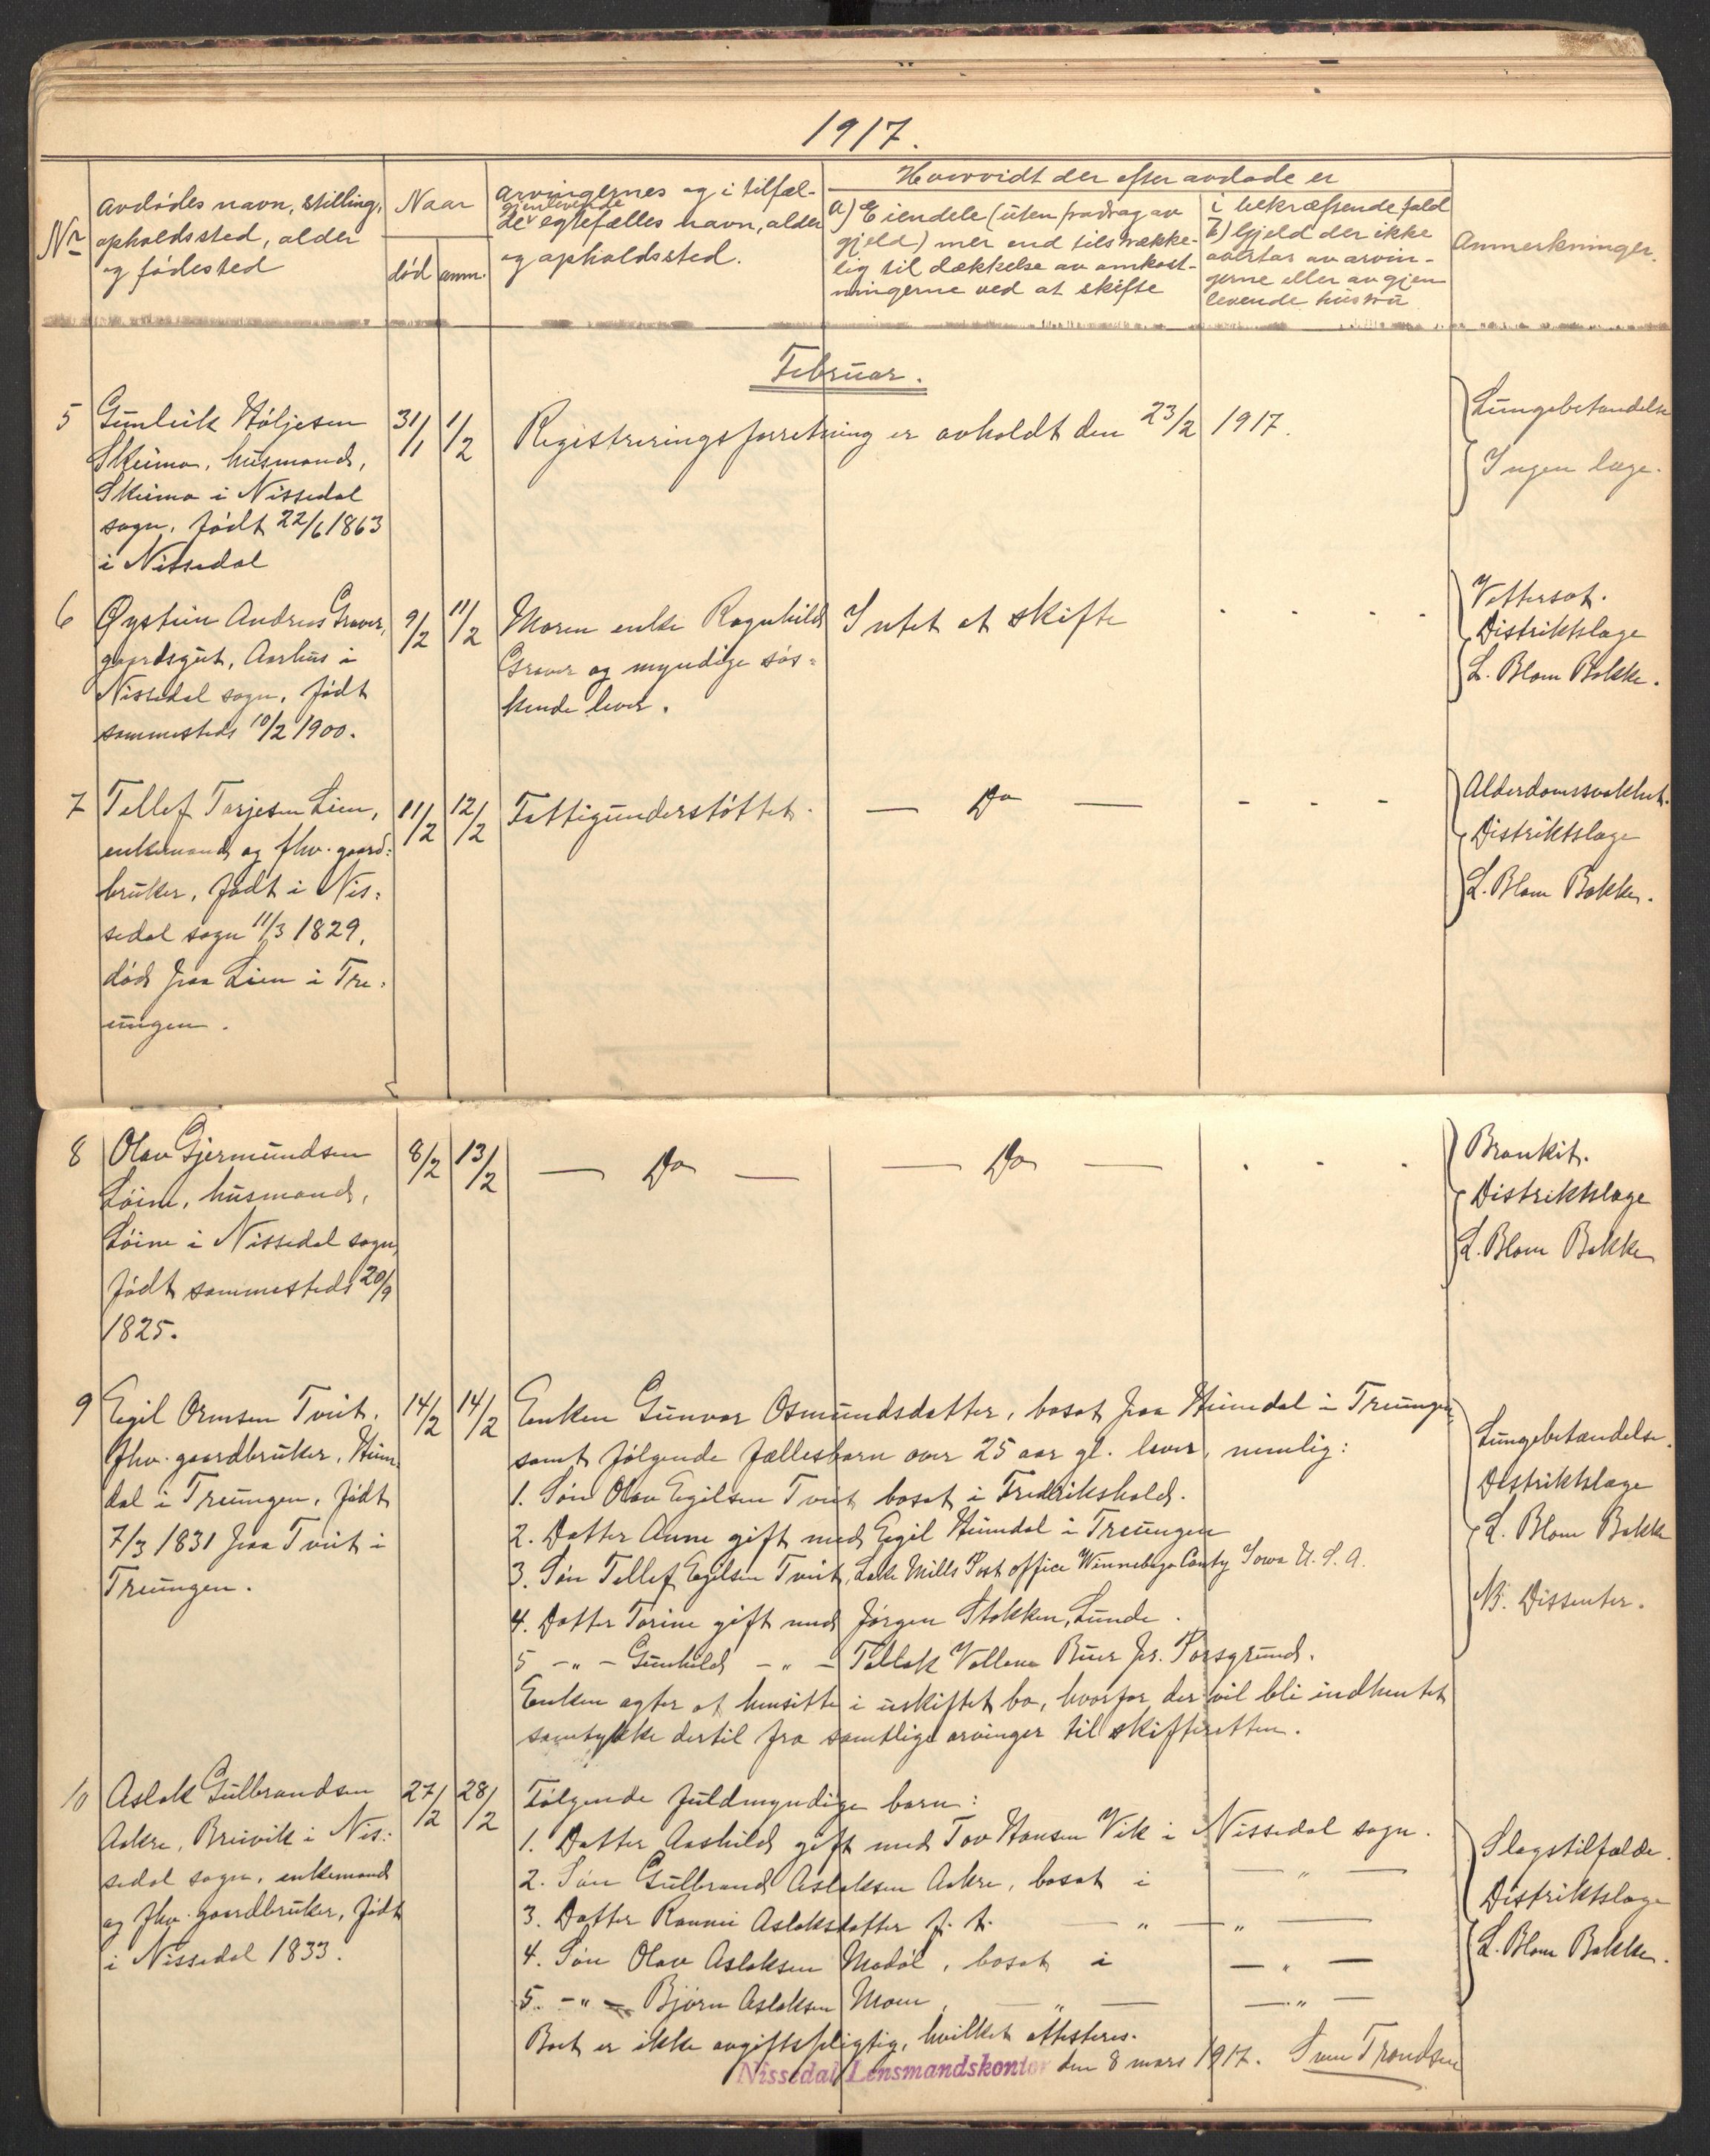 1917.
Nr
Avdødes navn, stilling,
opholdssted, alder
og fødested
Naar
død
anm.
Arvingernes og i tilfæl-
de gjenlevende
egtefælles navn, alder
og opholdssted.
Hvorvidt der efter avdøde er
a) Eiendele (uten fradrag av
gjeld) mer end tilstrække-
lig til dækkelse av omkost-
ningerne ved at skifte
i bekræftende fald
b) Gjeld der ikke
overtas av arvin-
gerne eller av gjen
levende hustru
Anmerkninger.
Februar.
5
Gunleik Høljesen
Skeimo, husmand,
Skeimo i Nissedal
sogn, født 22/6 1863
i Nissedal
31/1
1/2
Registreringsforretning er avholdt den 23/2 1917.
Lungebetændelse
Ingen læge.
6
Øystein Andreas Graver,
gaardsgut, Aarhus i
Nissedal sogn, født
sammesteds 10/2 1900.
9/2
11/2
Moren enke Ragnhild
Graver og myndige søs=
kende lever.
Intet at skifte
- - - -
Vattersot.
Distriktslæge
L. Blom Bakke.
7
Tellef Tarjesen Lien,
enkemand og fhv. gaard=
bruker, født i Nis=
sedal sogn 11/3 1829,
død paa Lien i Tre=
ungen.
11/2
12/2
Fattigunderstøttet.
— Do —
- - -
Alderdomssvakhet.
Distriktslæge
L. Blom Bakke.
8
Olav Gjermundsen
Løine, husmand,
Løine i Nissedal sogn,
født sammesteds 20/9
1825.
8/2
13/2
— Do —
— Do —
- - -
Bronkit.
Distriktslæge
L. Blom Bakke
9
Egil Ormsen Tveit,
fhv. gaardbruker, Heim-
dal i Treungen, født
7/3 1831 paa Tveit i
Treungen.
14/2
14/2
Enken Gunvor Osmundsdatter, bosat paa Heimdal i Treungen
samt følgende fællesbarn over 25 aar gl. lever, nemlig:
1. Søn Olav Egilsen Tveit bosat i Fredrikshald.
2. Datter Anne gift med Egil Heimdal i Treungen
3. Søn Tellef Egilsen Tveit, Lake Mills Post office Winnebago Conty Iowa U. S. A.
4. Datter Torine gift med Jørgen Stokken, Lunde.
5 -"- Gunhild -"- Tellek Vollane Buer pr. Porsgrund.
Enken agter at hensitte i uskiftet bo, hvorfor der vil bli indhentet
samtykke dertil fra samtlige arvinger til skifteretten.
Lungebetændelse.
Distriktslæge
L. Blom Bakke
NB. Dissenter.
10
Aslak Gulbrandsen
Aakre, Breivik i Nis=
sedal sogn, enkemand
og fhv. gaardbruker, født
i Nissedal 1833.
27/2
28/2
Følgende fuldmyndige barn:
1. Datter Aashild gift med Tov Hansen Vik i Nissedal sogn.
2. Søn Gulbrand Aslaksen Aakre, bosat i — " —
3. Datter Ranni Aslaksdatter f. t. — " — " —
4. Søn Olav Aslaksen Modøl, bosat i — " —
5. -"- Bjørn Aslaksen Moen, — " — — " —
Boet er ikke avgiftspligtig, hvilket attesteres.
Nissedal Lensmandskontor den 8 mars 1917. Sven Trondsen
Slagstilfælde.
Distriktslæge
L. Blom Bakke.